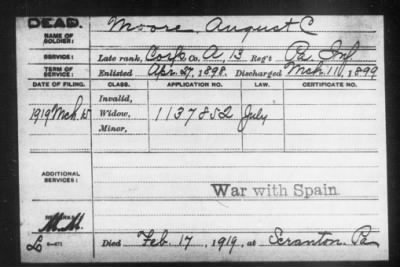 DEAD.
NAME OF SOLDIER: Moore August C
SERVICE: Late rank, Corp. Co. A, 13 Reg't Pa. Inf
TERM OF SERVICE: Enlisted Apr. 27, 1898. Discharged Mch. 11, 1899
DATE OF FILING. CLASS. APPLICATION NO. LAW. CERTIFICATE NO.
Invalid,
1919 Mch. 15 Widow, 1137852 July
Minor,
ADDITIONAL SERVICES:
War with Spain
REMARKS:
Died Feb. 17, 1919, at Scranton Pa